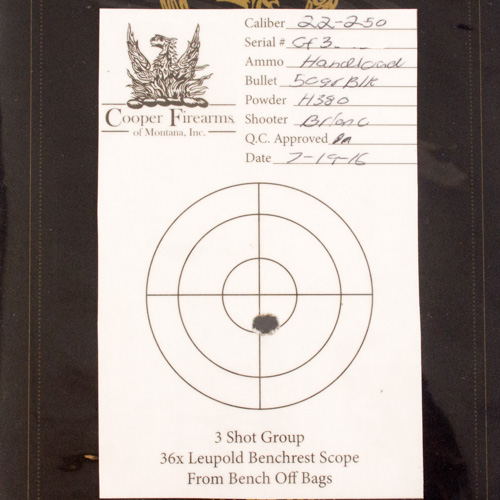 Cooper Firearms
of Montana, Inc.
Caliber 22-250
Serial # GF3
Ammo Handload
Bullet 50gr Blk
Powder H380
Shooter Brian C
Q.C. Approved
Date 7-19-16
3 Shot Group
36x Leupold Benchrest Scope
From Bench Off Bags